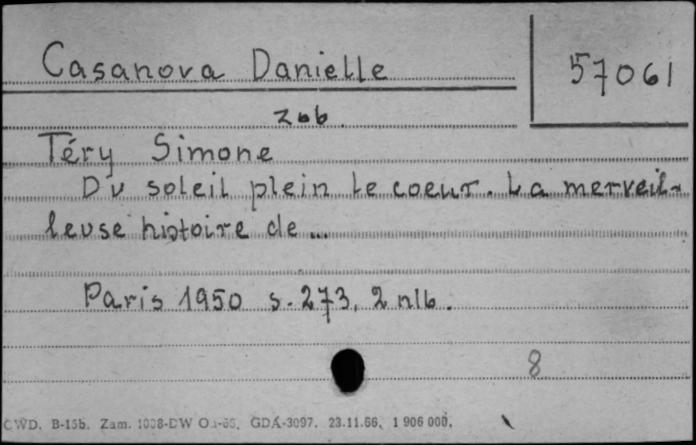 Casanova Danielle
57061
zob.
Téry Simone
Du soleil plein le coeur. La merveil-
leuse histoire de ...
Paris 1950 s. 273, 2 nlb.
8
CWD. B-15b. Zam. GDA-3097. 23.11.66, 1 906 000.